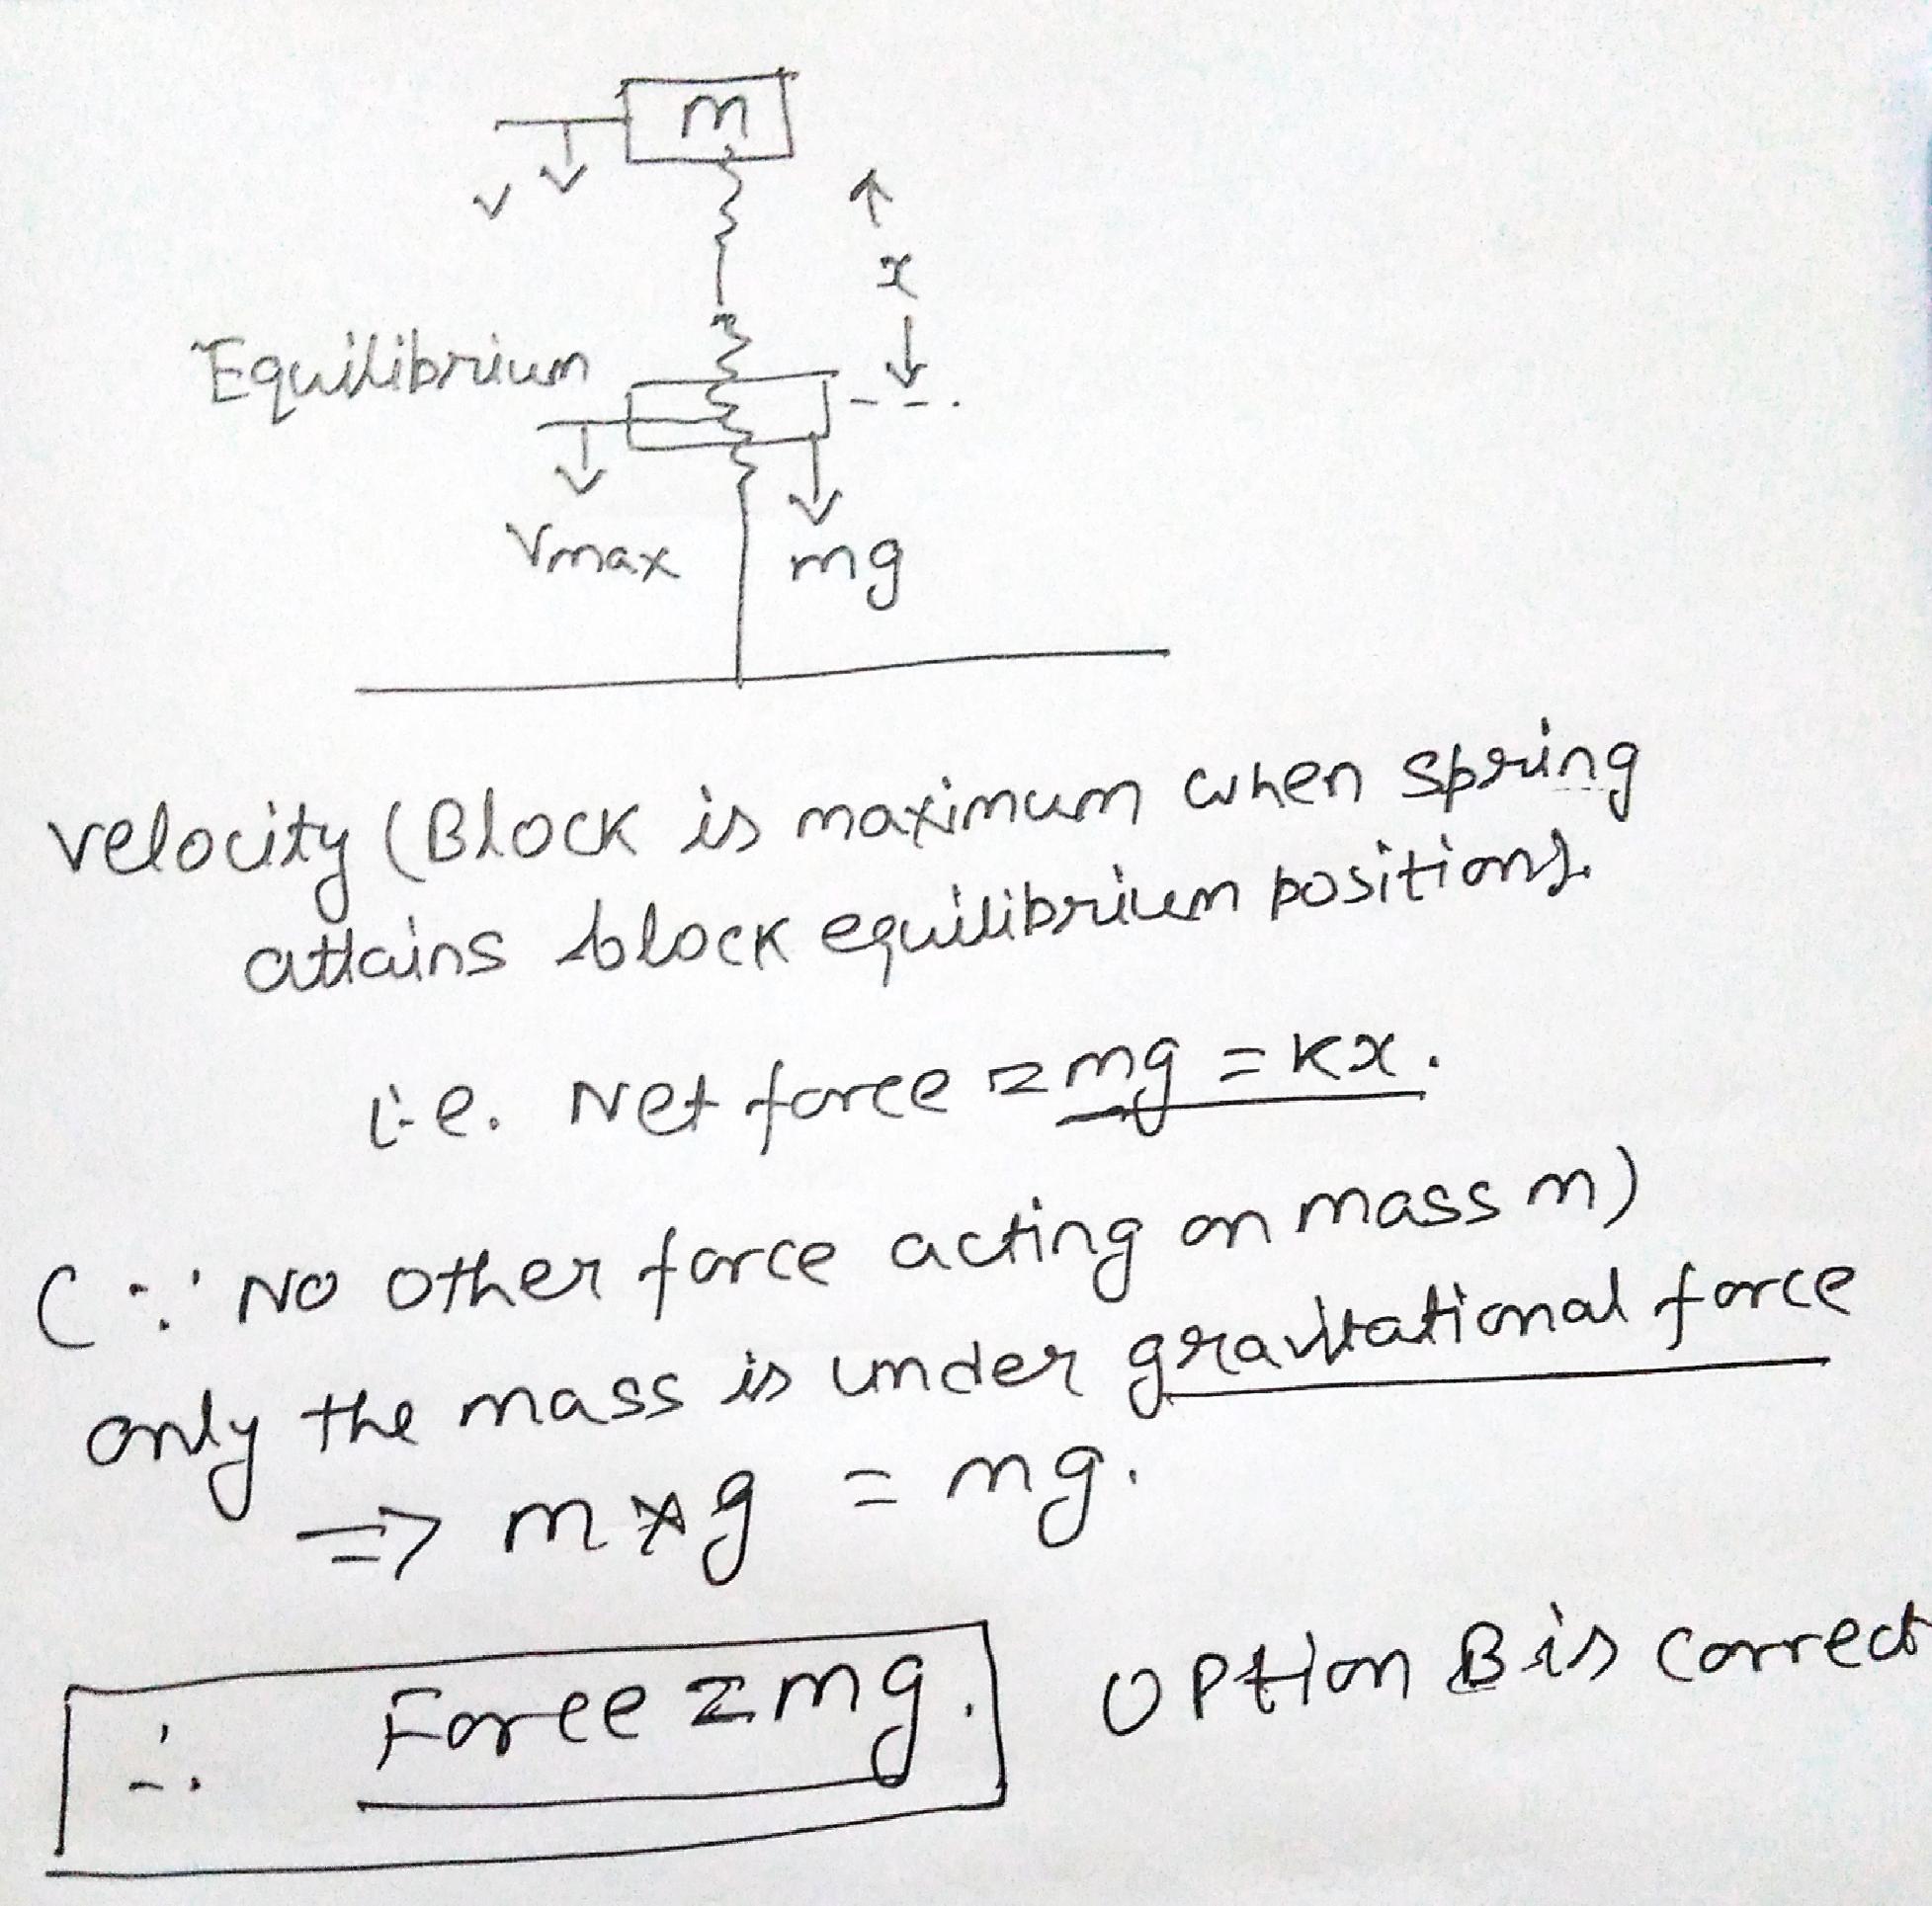 m
v
x
Equilibrium
Vmax
mg
velocity (Block is maximum when spring
attains block equilibrium positions.
i.e. Net force = mg = Kx.
(∵ No other force acting on mass m)
only the mass is under gravitational force
=> m x g = mg.
∴ Force = mg. Option B is correct